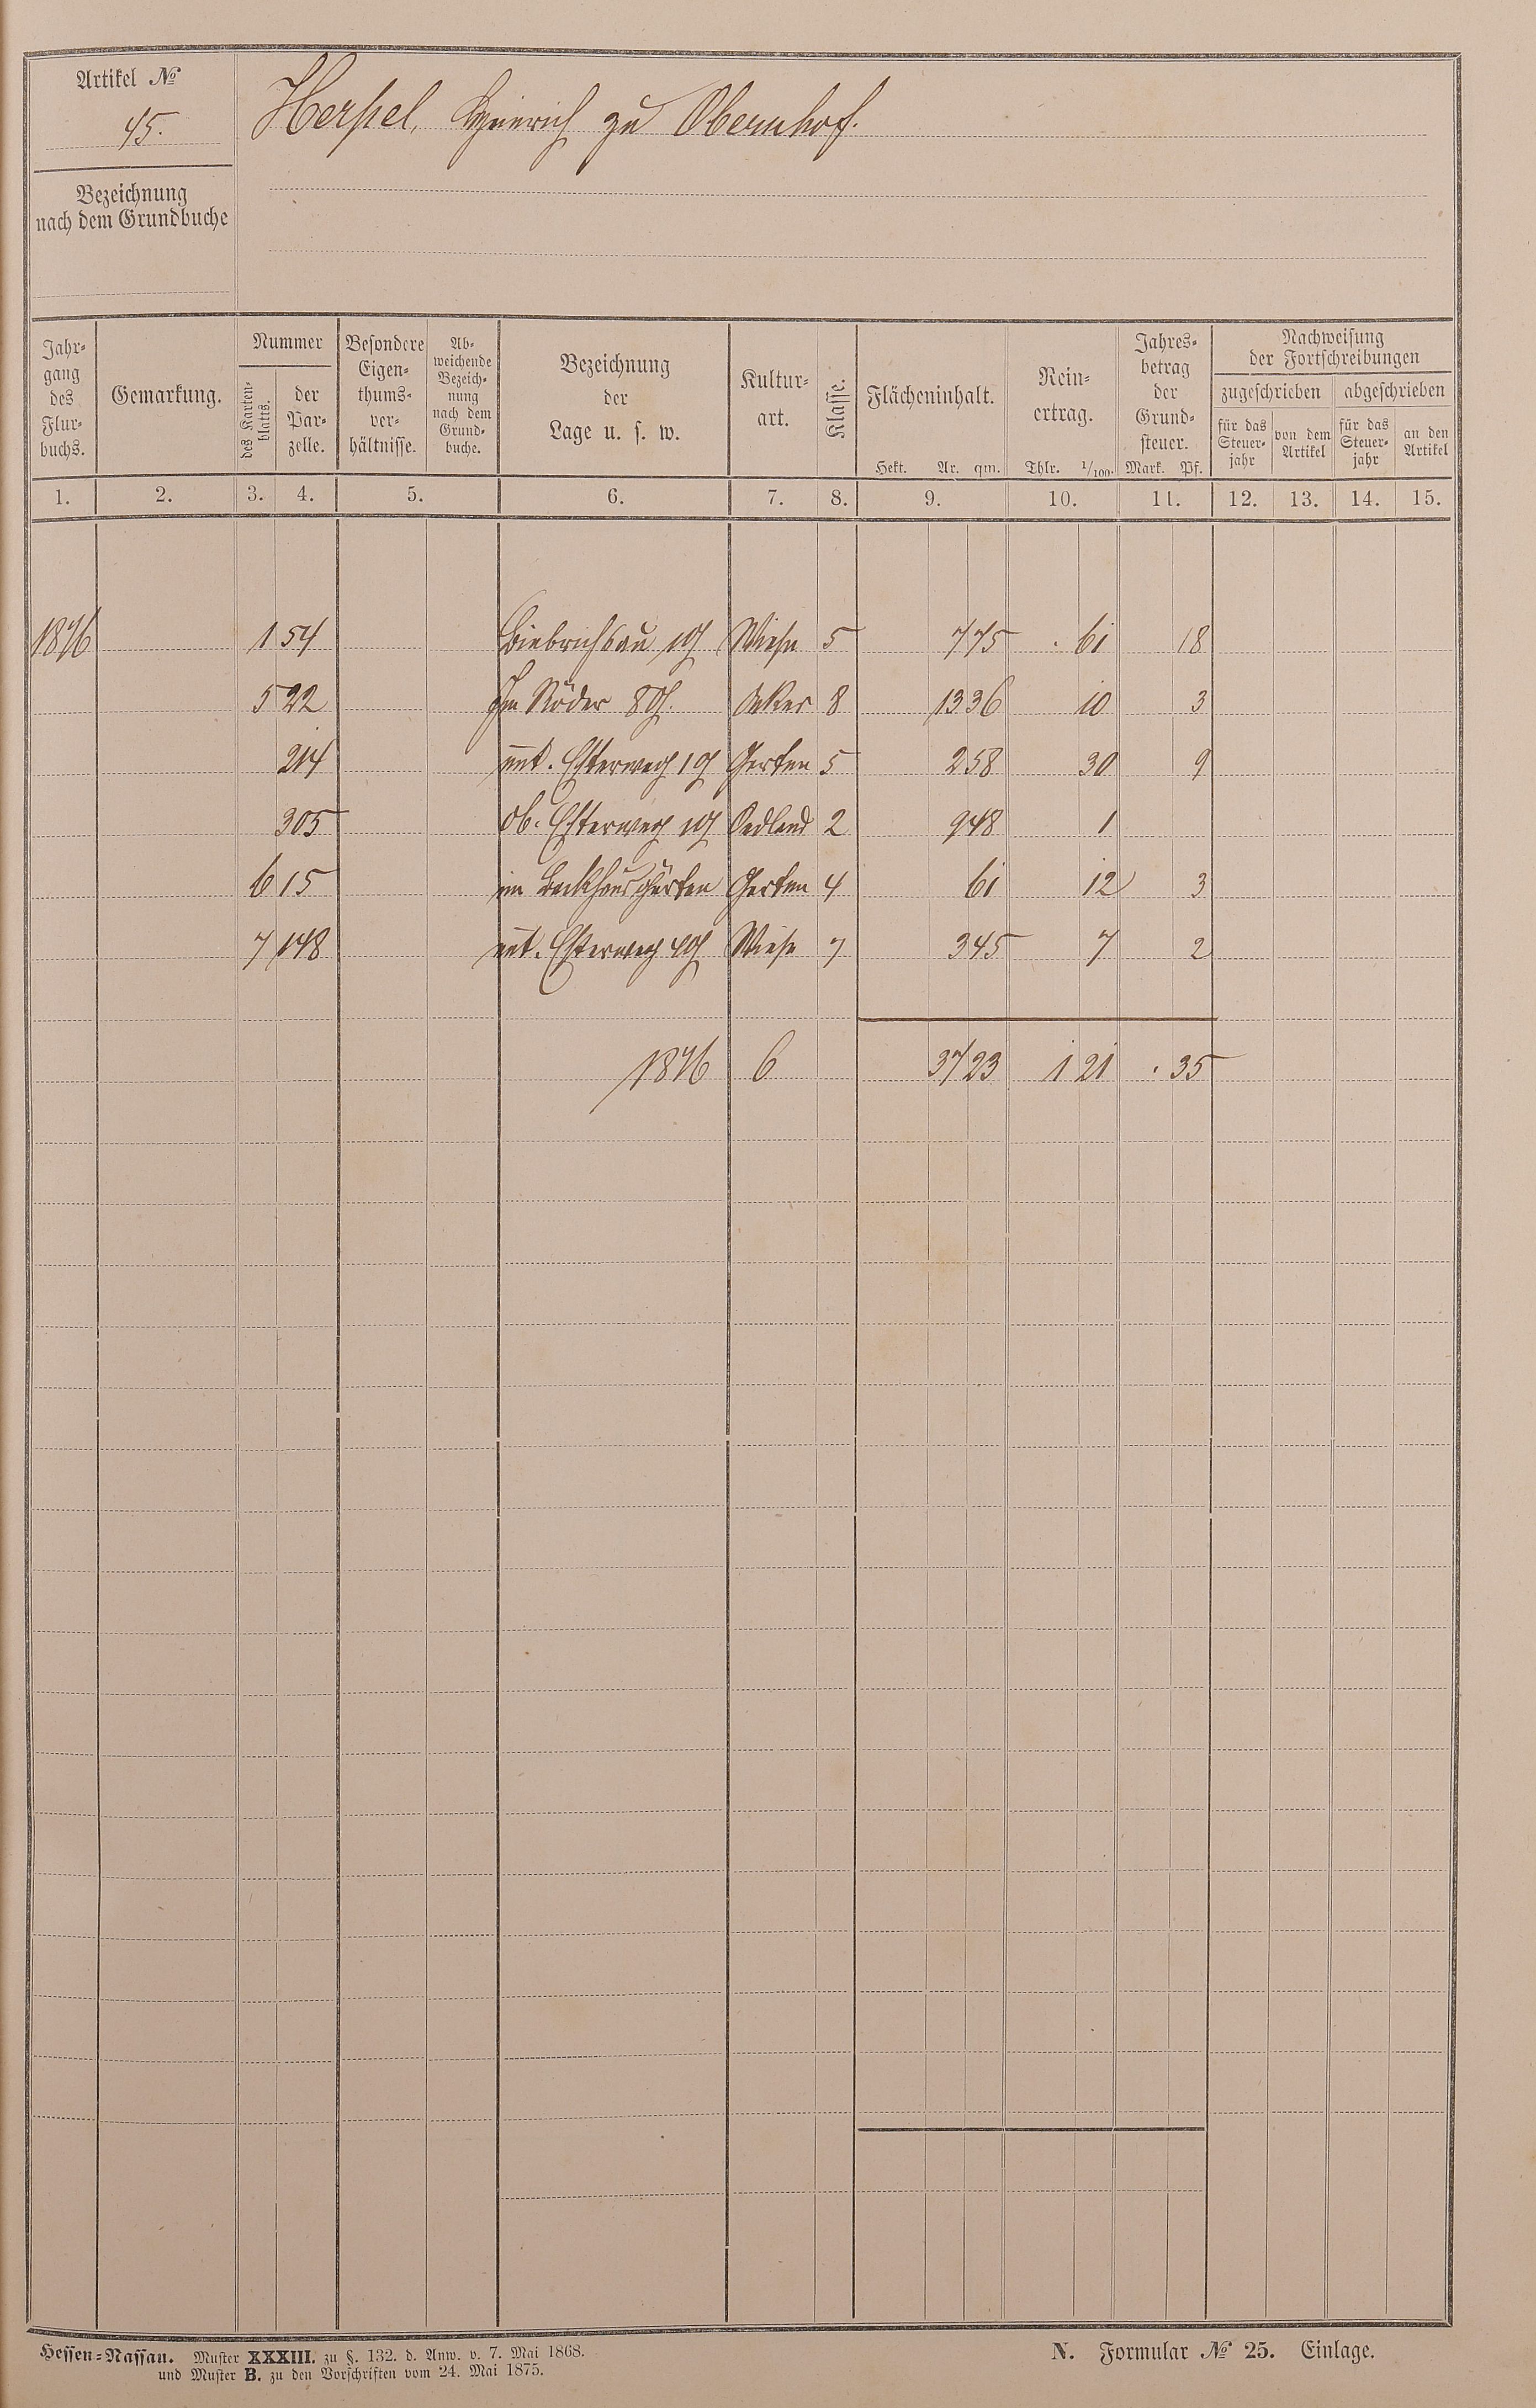 Artikel №
45.
Herpel, Heinrich zu Obernhof.
Bezeichnung
nach dem Grundbuche
Jahr-
gang
des
Flur-
buchs.
Gemarkung.
Nummer
des Karten-
blatts.
der
Par-
zelle.
Besondere
Eigen-
thums-
ver-
hältnisse.
Ab-
weichende
Bezeich-
nung
nach dem
Grund-
buche.
Bezeichnung
der
Lage u. s. w.
Kultur-
art.
Klasse.
Flächeninhalt.
Hekt. Ar. qm.
Rein-
ertrag.
Thlr. 1/100.
Jahres-
betrag
der
Grund-
steuer.
Mark. Pf.
Nachweisung
der Fortschreibungen
zugeschrieben abgeschrieben
für das
Steuer-
jahr
von dem
Artikel
für das
Steuer-
jahr
an den
Artikel
1. 2. 3. 4. 5. 6. 7. 8. 9. 10. 11. 12. 13. 14. 15.
1876 1 54 Biebrichsau Wiese 5 7 75 . 61 18
5 22 Im Röder Acker 8 13 36 10 3
214 unt. Garten 5 2 58 30 9
305 Ob. Oedland 2 9 48 1
6 15 im Backhausgärten Garten 4 61 12 3
7 148 unt. Wiese 7 3 45 7 2
1876 6 37 23 1 21 . 35
Hessen-Nassau. Muster XXXIII. zu §. 132. d. Anw. v. 7. Mai 1868.
und Muster B. zu den Vorschriften vom 24. Mai 1875.
N. Formular № 25. Einlage.